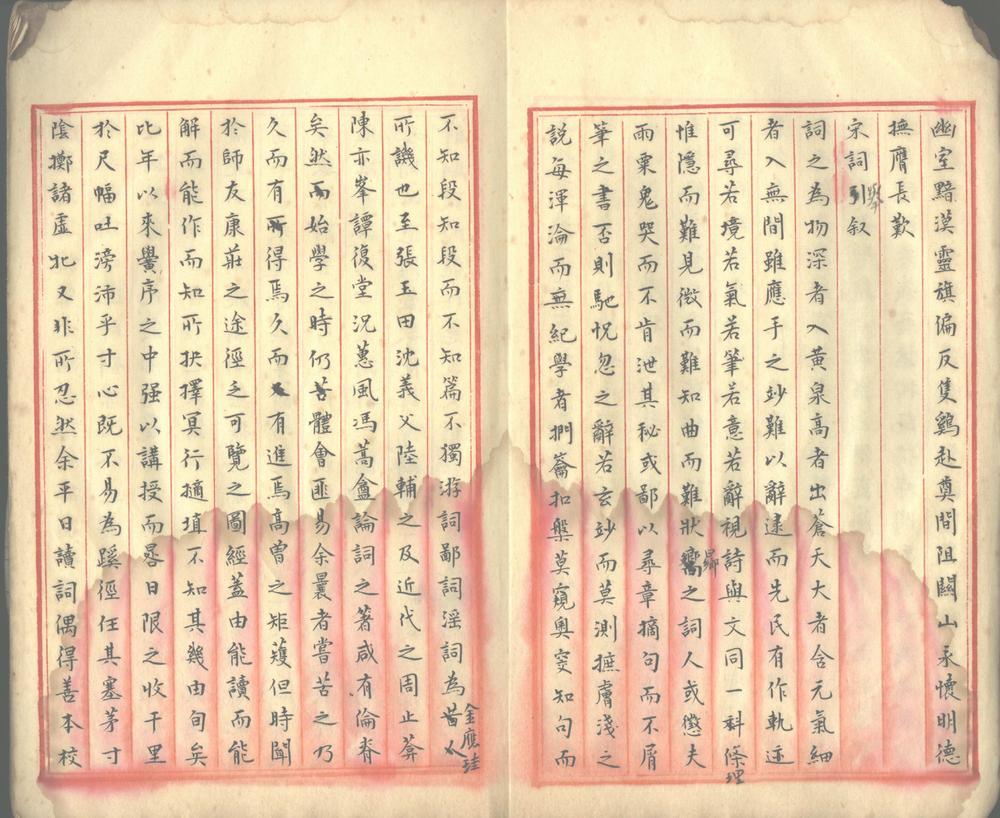 幽室黯漠靈旗偏反隻鷄赴奠間阻關山永懷明德
撫膺長歎
宋詞舉引叙
詞之為物深者入黃泉高者出蒼天大者含元氣細
者入無間雖應手之妙難以辭逮而先民有作軌迹
可尋若境若氣若筆若意若辭視詩與文同一科條理
惟隱而難見微而難知曲而難狀曏之詞人或懲夫
雨粟鬼哭而不肯泄其秘或鄙以尋章摘句而不屑
筆之書否則馳怳忽之辭若玄妙而莫測摭膚淺之
說每渾淪而無紀學者捫籥扣槃莫窺奧窔知句而
不知段知段而不知篇不獨游詞鄙詞淫詞為昔人金應珪
所譏也至張玉田沈義父陸輔之及近代之周止葊
陳亦峯譚復堂況蕙風馮蒿盦論詞之著咸有倫脊
矣然而始學之時仍苦體會匪易余曩者嘗苦之乃
久而有所得焉久而有進焉高曾之矩矱但時聞
於師友康莊之途徑乏可覽之圖經蓋由能讀而能
解而能作而知所抉擇冥行擿埴不知其幾由旬矣
比年以來黌序之中强以講授而晷日限之收千里
於尺幅吐滂沛乎寸心既不易為蹊徑任其塞茅寸
陰擲諸虛牝又非所忍然余平日讀詞偶得善本校